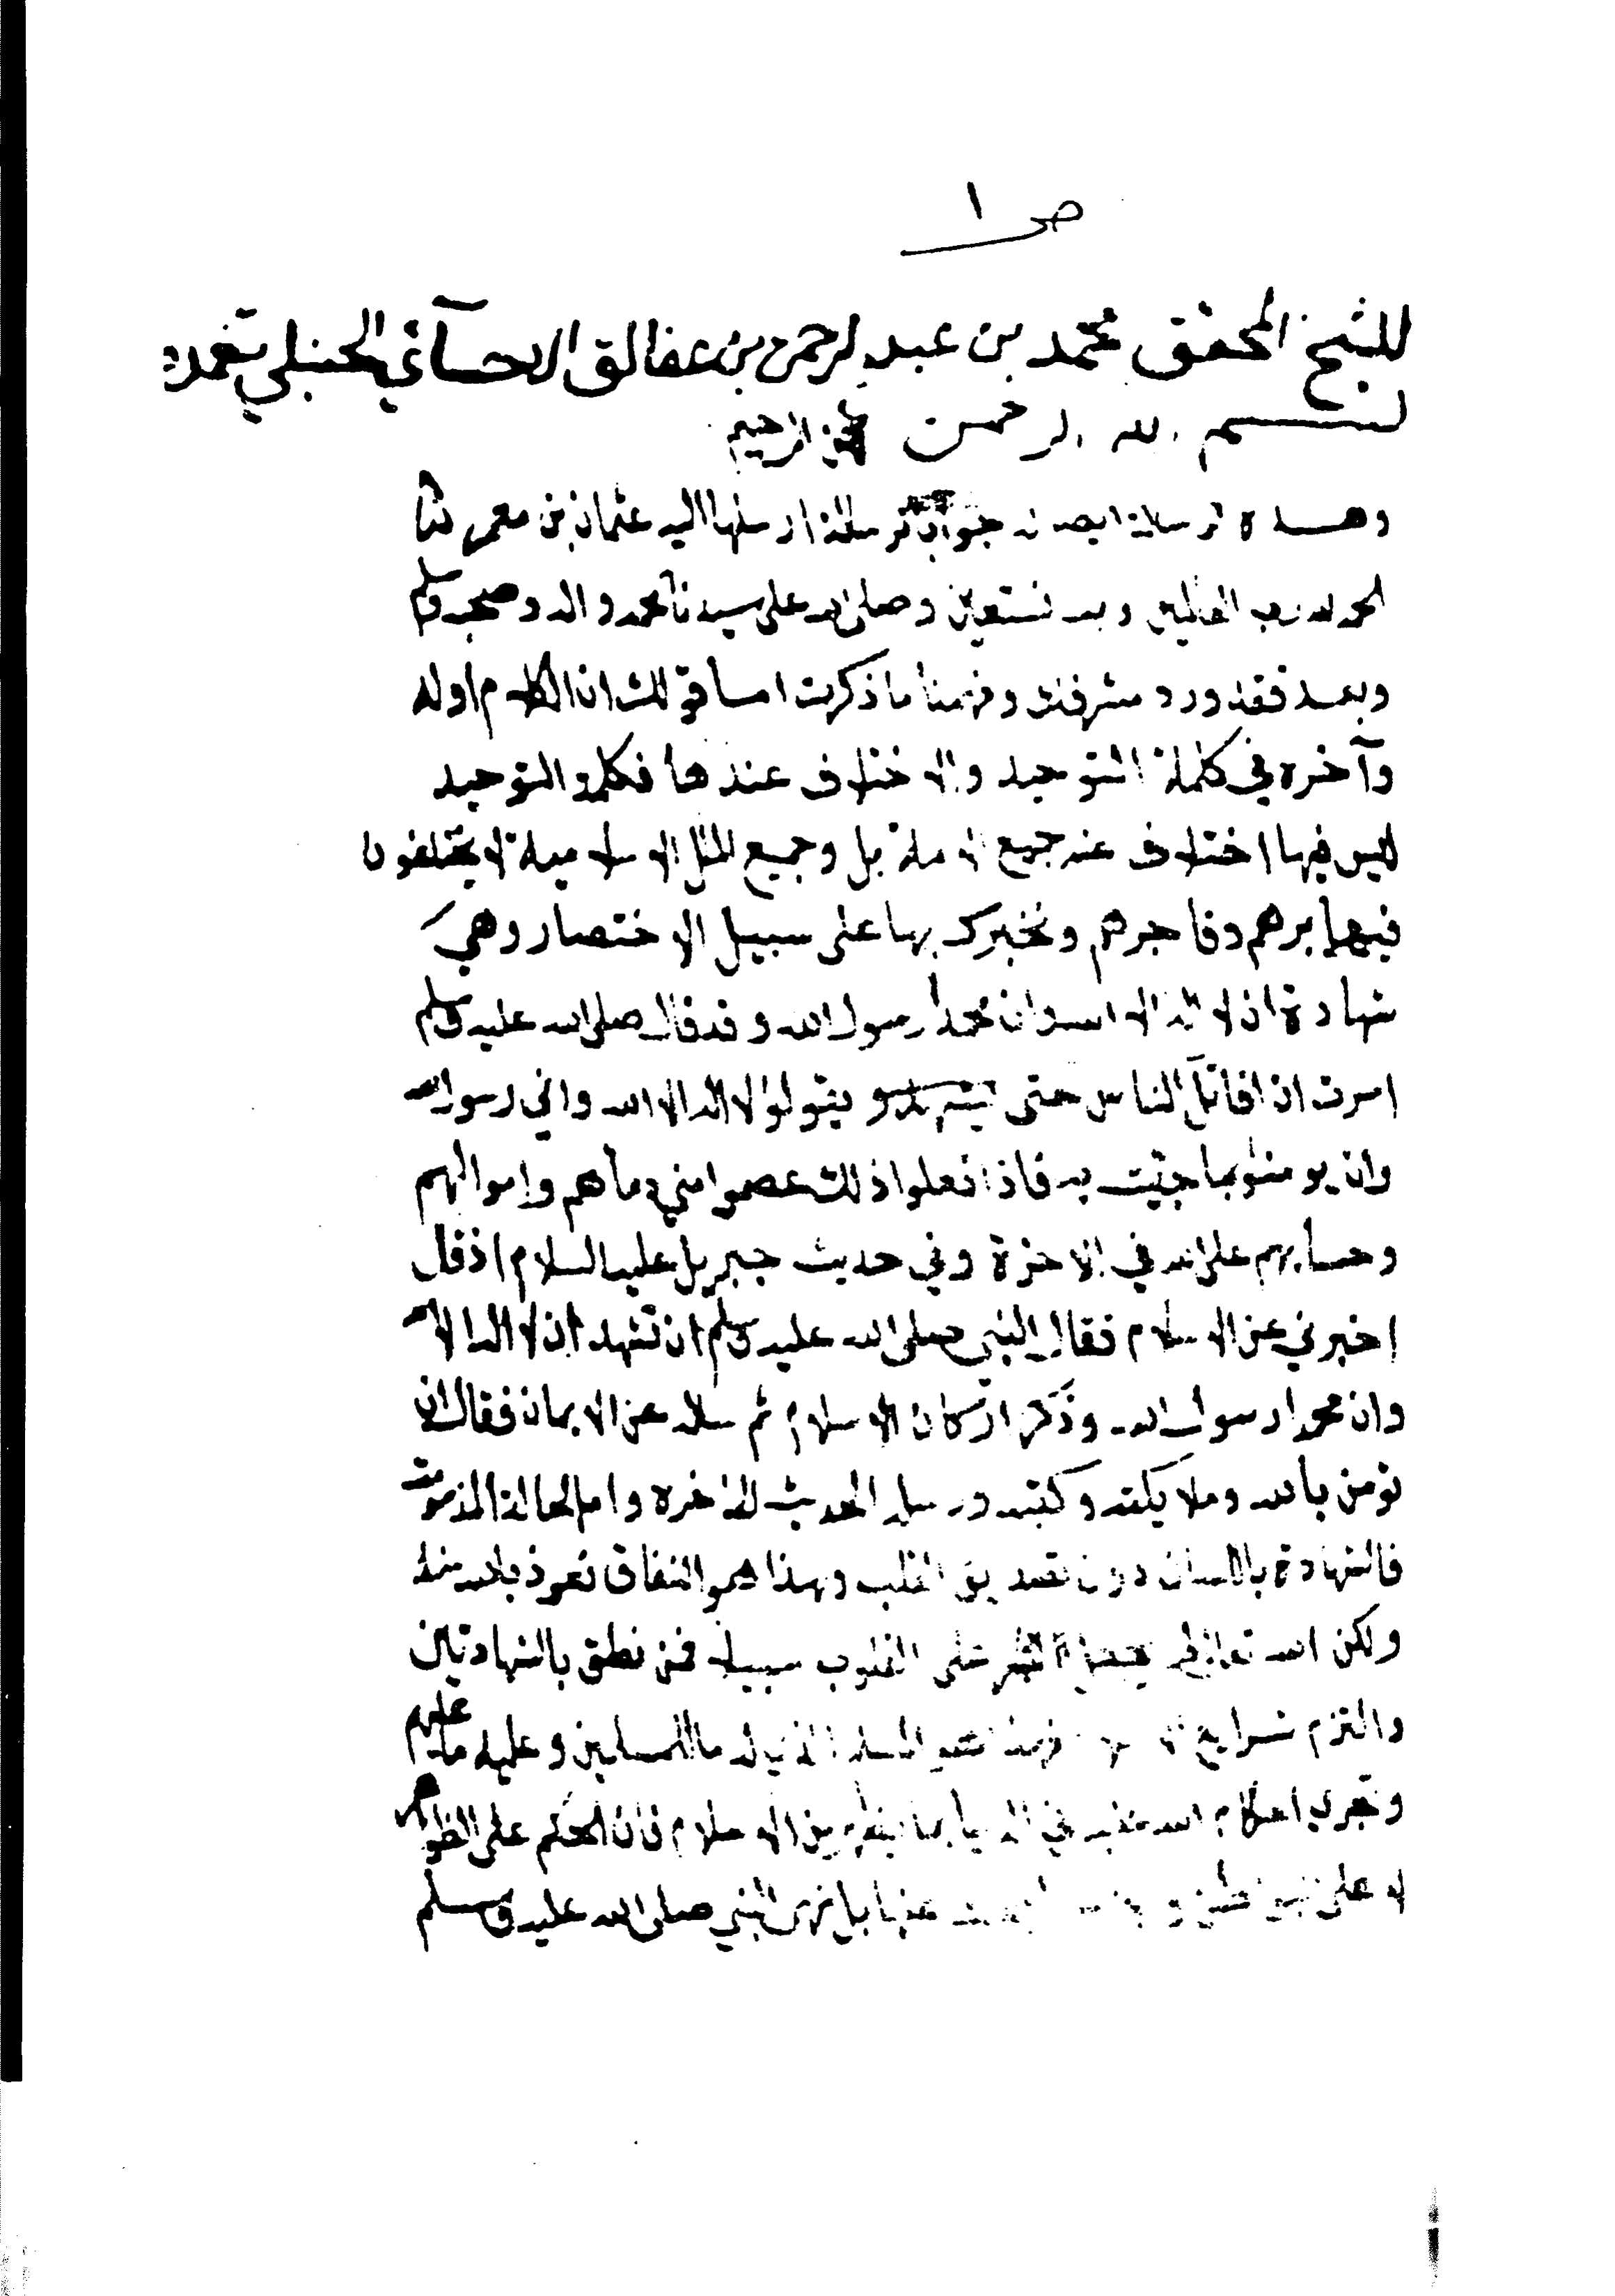 ص ١
للشيخ المحقق محمد بن عبد الرحمن بن عفالق الاحسآئي الحنبلي تغمده
بسم الله الرحمن الرحيم
وهذه رسالة ايضا له جوابا لرسالة ارسلها اليه عثمان بن معمر
الحمد لله رب العالمين وبه نستعين وصلى الله على سيدنا محمد واله وصحبه وسلم
وبعد فقد ورد مشرفك وفهمنا ما ذكرت اما قولك ان الكلام اوله
وآخره في كلمة التوحيد والاختلاف عندها فكلمة التوحيد
ليس فيها اختلاف عند جميع الامة بل وجميع الملل الاسلامية لا يختلفون
فيها برهم وفاجرهم ونخبرك بها على سبيل الاختصار وهي
شهادة ان لا اله الا الله وان محمدا رسول الله وقد قال صلى الله عليه وسلم
امرت ان اقاتل الناس حتى يقولوا لا اله الا الله واني رسول الله
وان يومنوا بما جئت به فاذا فعلوا ذلك عصموا مني دماهم واموالهم
وحسابهم على الله في الاخرة وفي حديث جبريل عليه السلام اذ قال
اخبرني عن الاسلام فقال النبي صلى الله عليه وسلم ان تشهد ان لا اله الا الله
وان محمدا رسول الله وذكر اركان الاسلام ثم سأله عن الايمان فقال ان
تؤمن بالله وملايكته وكتبه ورسله الحديث الى اخره واما الحالة المذمومة
فالشهادة باللسان دون تصديق القلب وهذا هو النفاق نعوذ بالله منه
ولكن الله تعالى لم يجعل على القلوب سبيلا فمن نطق بالشهادتين
والتزم شرايع فهذا هو المسلم الذي له ما للمسلمين وعليه ما عليهم
وتجري احكام الله عليه في الدنيا بما يظهر من الاسلام فان الحكم على الظواهر
لا على البواطن بل نهى النبي صلى الله عليه وسلم